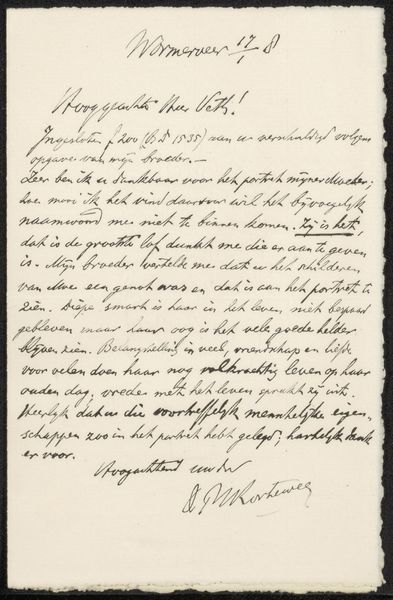 Wormerveer 17/1 8
Hooggeachte Heer Veth!
Ingesloten f 200 (BD 1535) aan u verschuldigd volgens
opgave van mijn broeder. —
Zeer ben ik u dankbaar voor het portret mijner Moeder;
hoe mooi ik het vind daarvoor wil het bijvoegelijk
naamwoord me niet te binnen komen. Zij is het,
dat is de grootste lof dunkt me die er aan te geven
is. Mijn broeder vertelde me dat u het schilderen
van een genot was en dat is aan het portret te
zien. Diepe smart is haar in het leven niet bespaard
gebleven maar haar oog is het vele goede helder
blijven zien. Belangstelling in veel, vriendschap en liefde
voor velen doen haar nog volkrachtig leven op haar
ouden dag; vrede met het leven spreekt zij uit.
Heerlijk dat u die voortreffelijk menschelijke eigen-
schappen zoo in het portret hebt gelegd; hartelijk dank
er voor.
Hoogachtend uw dw
Korteweg